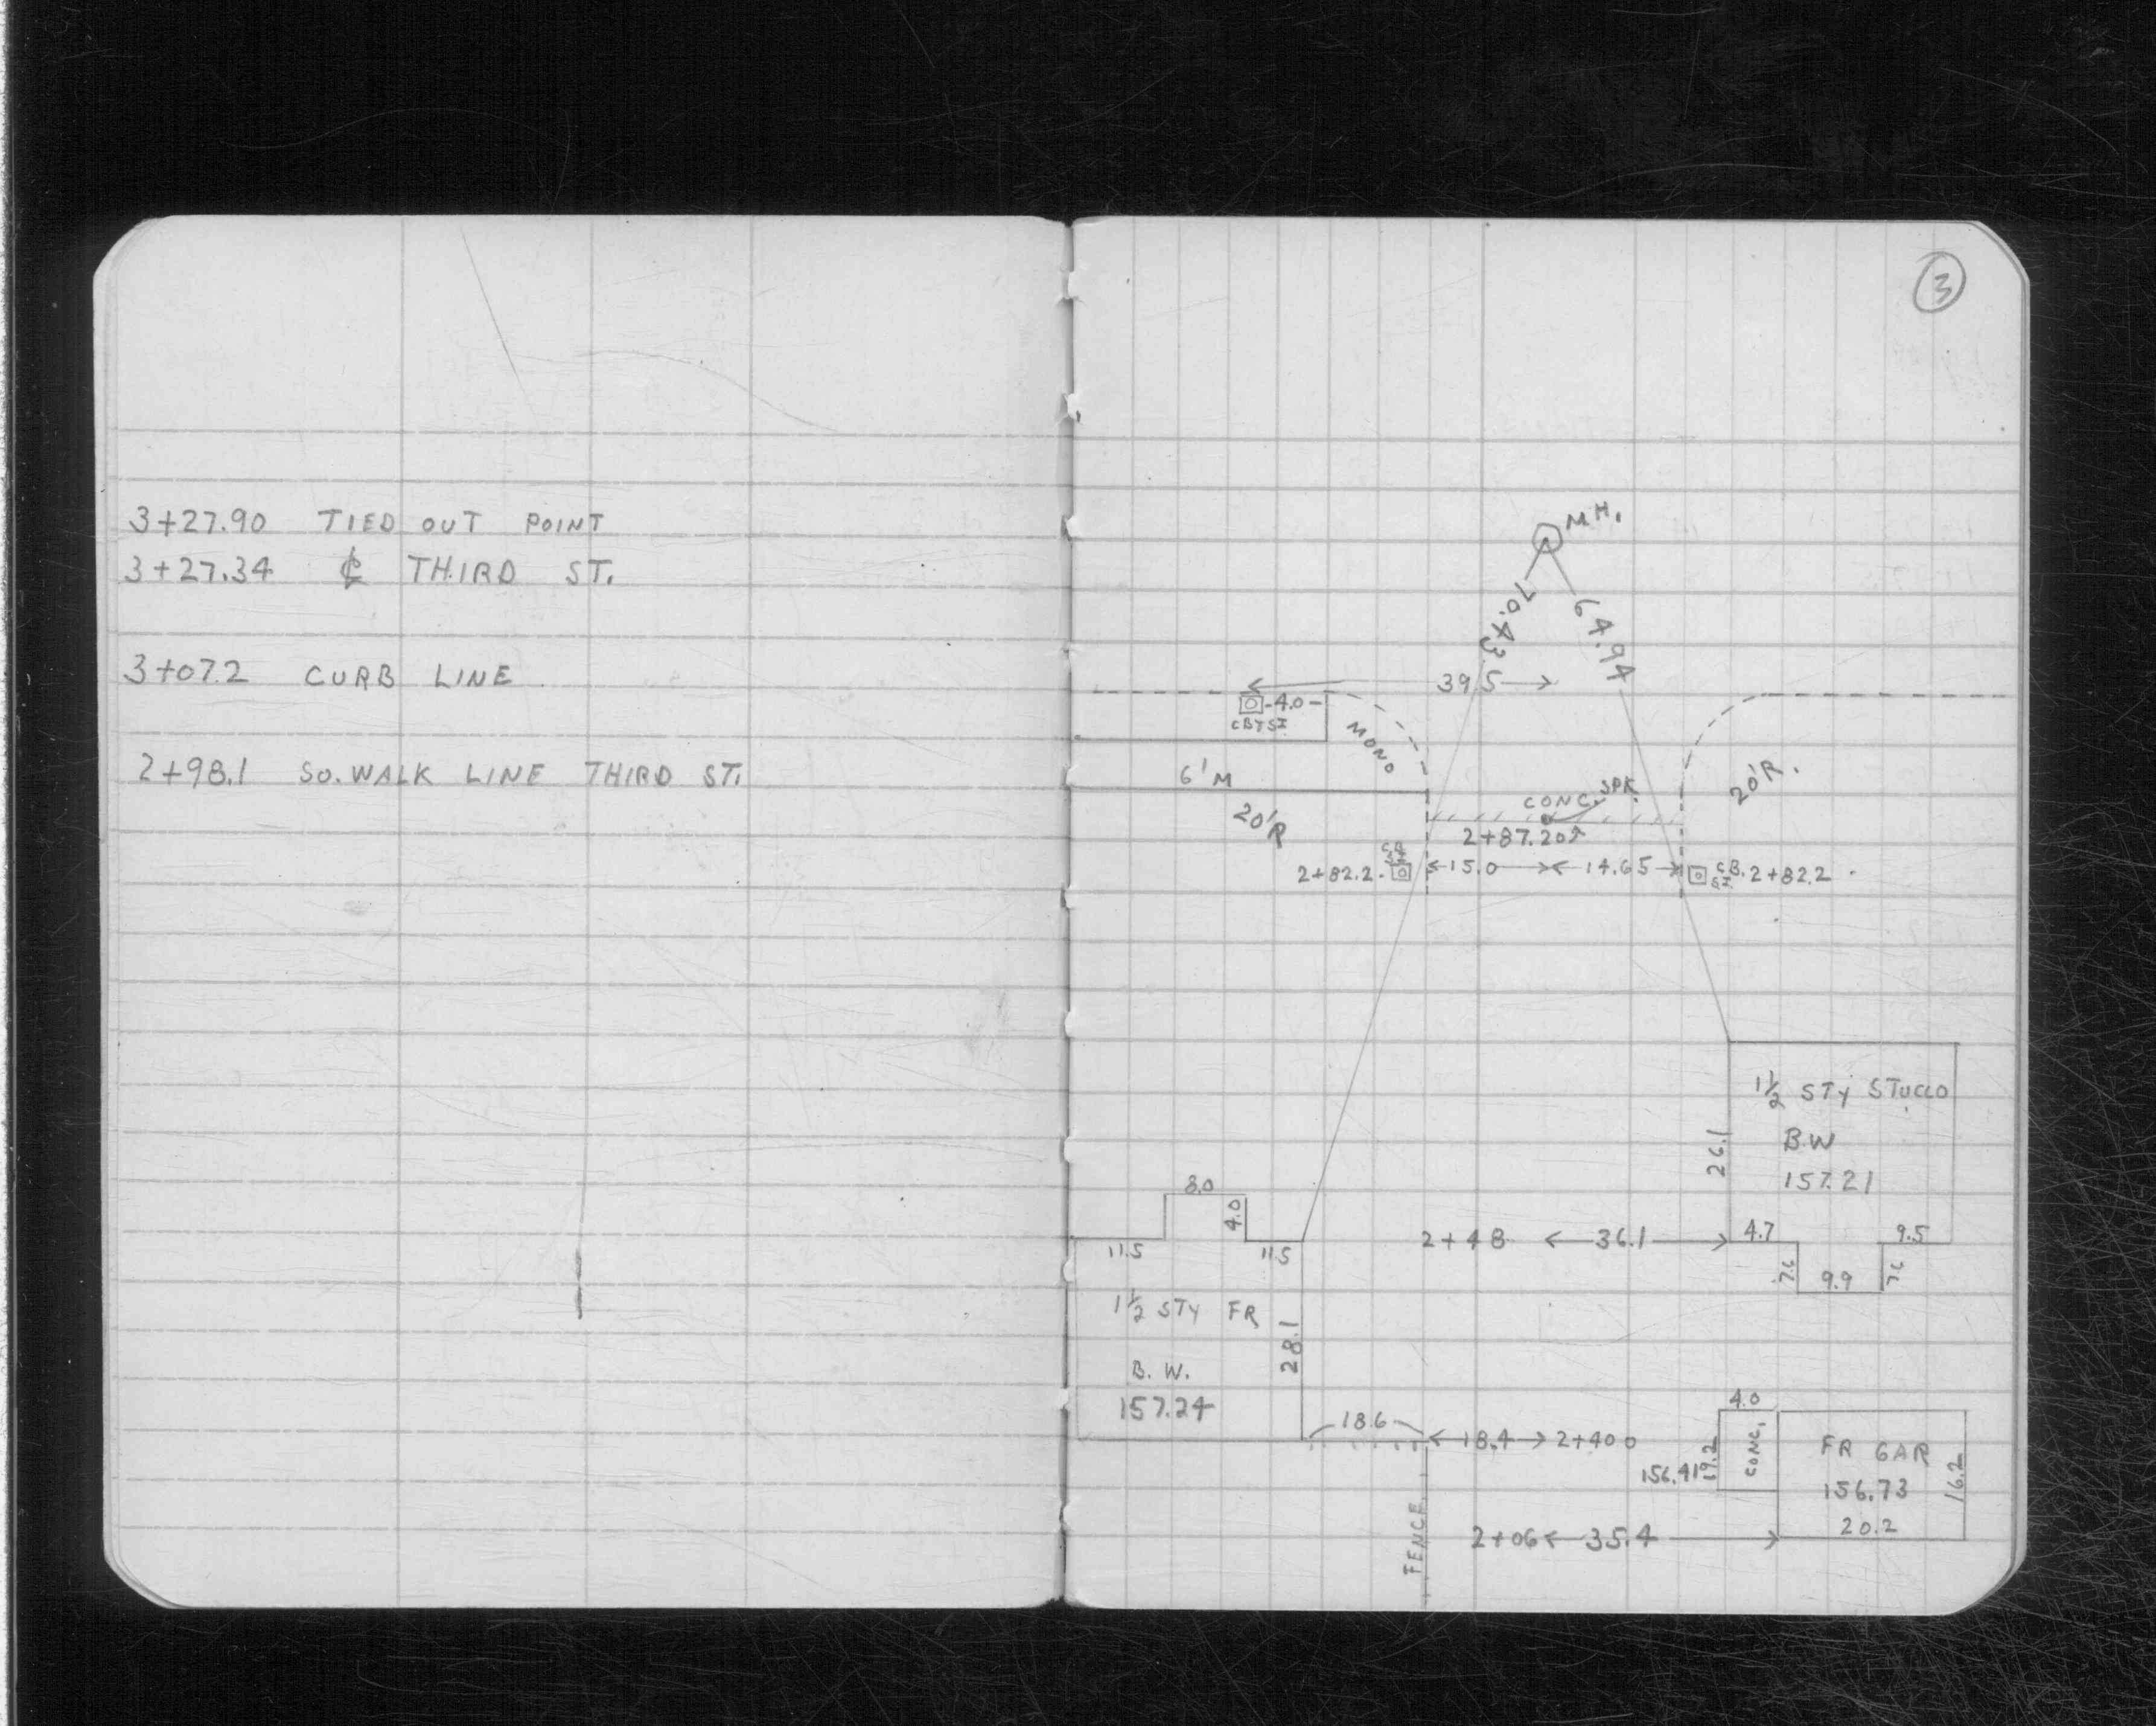 3+27.90 TIED OUT POINT
3+27.34 ℄ THIRD ST.
3+07.2 CURB LINE
2+98.1 SO. WALK LINE THIRD ST.
3
MH.
70.43
64.94
39.5
4.0
MONO
6' M
20'R
20'R.
CONC. SPK.
2+87.20
2+82.2
CB
15.0
14.65
CB. 2+82.2
1½ STY STUCCO
B.W
157.21
26.1
8.0
4.0
11.5
11.5
2+48
36.1
4.7
9.5
7.6
9.9
7.6
1½ STY FR
B. W.
157.24
28.1
18.6
18.4
2+40.0
4.0
CONC.
19.2
156.41
FR GAR
156.73
20.2
16.2
FENCE
2+06
35.4